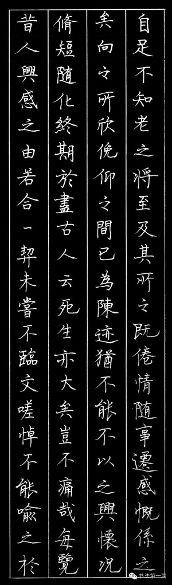 自足不知老之将至及其所之既倦情随事遷感慨係之
矣向之所欣俛仰之間已為陳迹猶不能不以之興懷况
脩短隨化終期於盡古人云死生亦大矣豈不痛哉每覽
昔人興感之由若合一契未嘗不臨文嗟悼不能喻之於